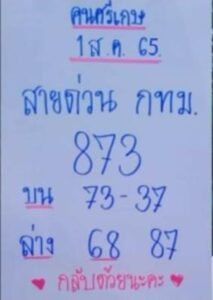 คนศรีเกษ
1 ส.ค. 65.
สายด่วน กทม.
873
บน 73-37
ล่าง 68 87
กลับด้วยนะคะ